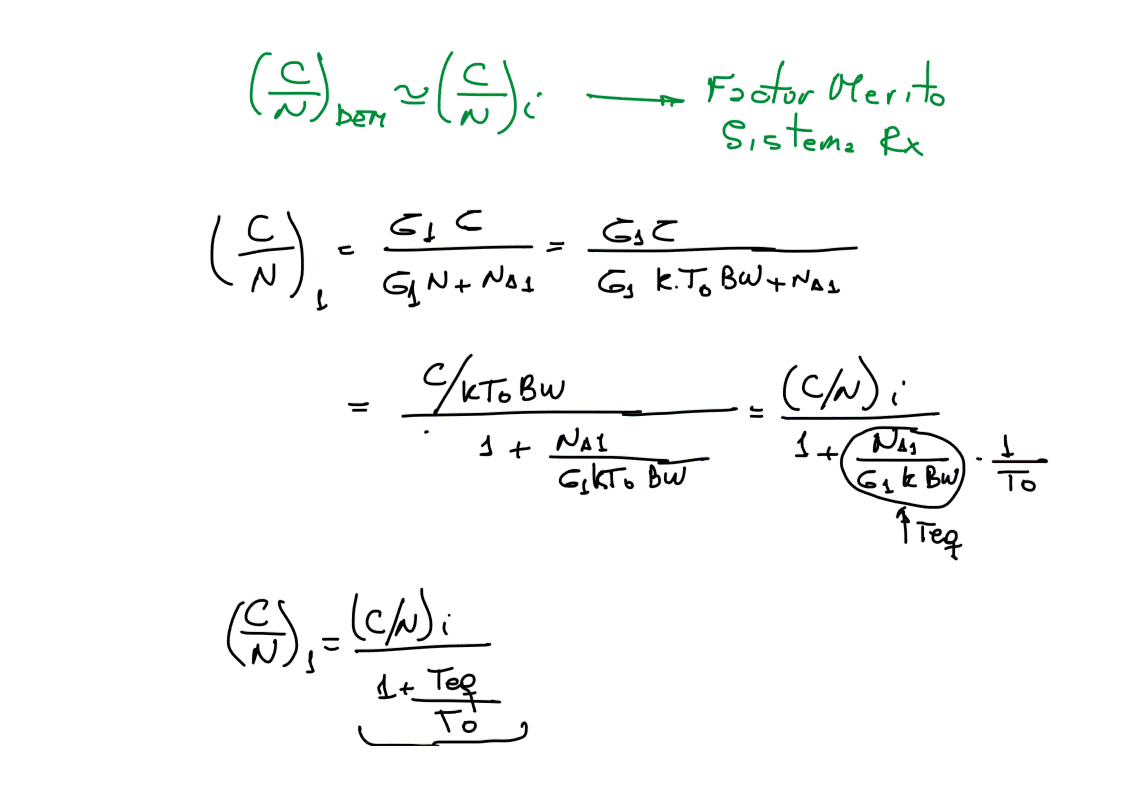 (C/N)DEM ≃ (C/N)i → Factor Merito
Sistema Rx
(C/N)1 = G1 C / (G1 N + NA1) = G1 C / (G1 k.T0 BW + NA1)
= (C/kT0 BW) / (1 + NA1/(G1 kT0 BW)) = (C/N)i / (1 + NA1/(G1 k BW) · 1/T0)
↑ Teq
(C/N)1 = (C/N)i / (1 + Teq/T0)